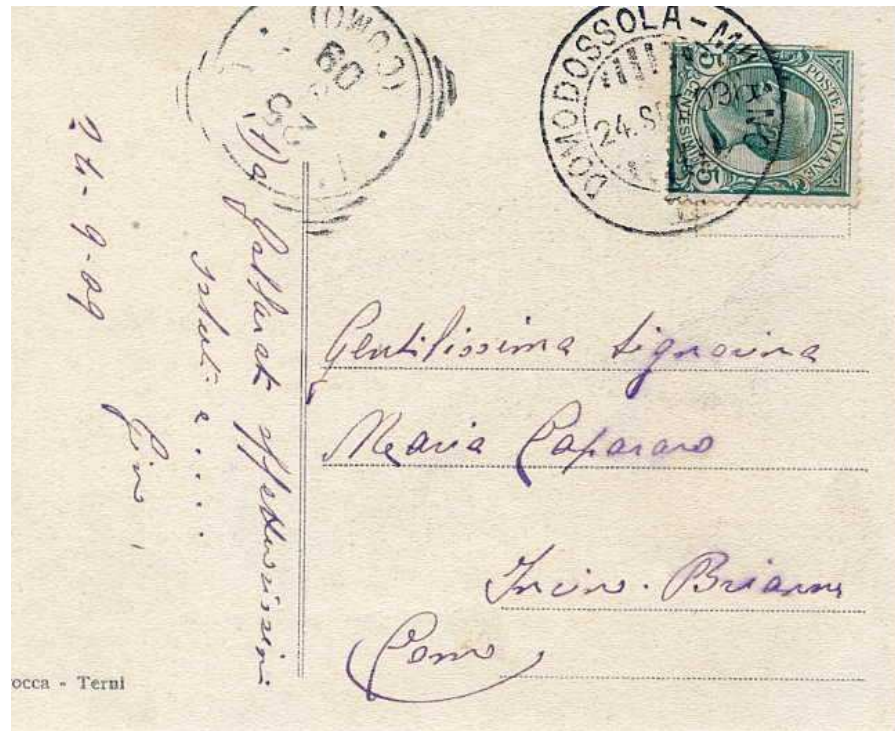 (COMO)
25
09
DOMODOSSOLA-MILANO
24.SET.09
POSTE ITALIANE
CENTESIMI
5
5
24-9-09
Da Gallarate affettuosissimi
saluti e....
Gino
Gentilissima Signorina
Maria Caparaso
Incino. Brianza
Como
occa - Terni